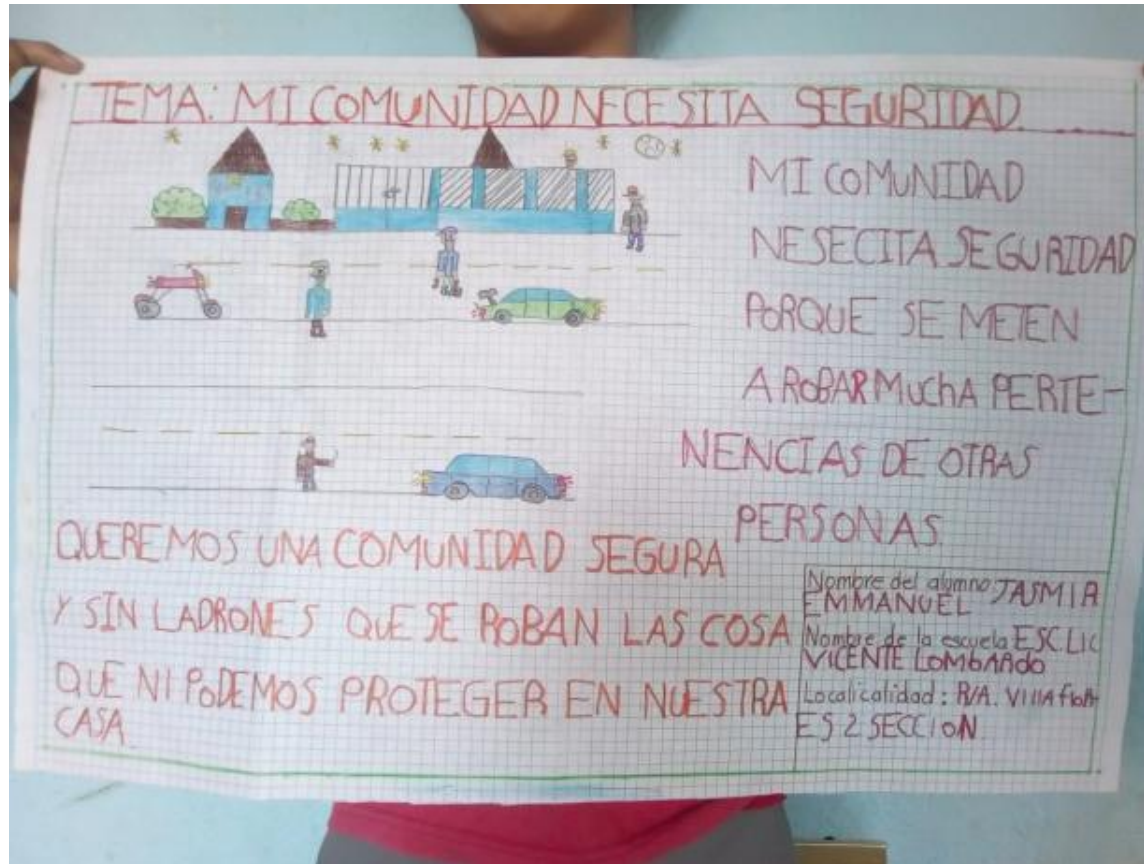 TEMA: MI COMUNIDAD NECESITA SEGURIDAD.
MI COMUNIDAD
NESECITA SEGURIDAD
PORQUE SE METEN
A ROBAR MUCHA PERTE-
NENCIAS DE OTRAS
PERSONAS.
QUEREMOS UNA COMUNIDAD SEGURA
Y SIN LADRONES QUE SE ROBAN LAS COSA
QUE NI PODEMOS PROTEGER EN NUESTRA
CASA
Nombre del alumno JASMIR
EMMANUEL
Nombre de la escuela ESC LIC
VICENTE LOMBARDO
Localicalidad: R/A. VILLA FLOR
ES 2 SECCION